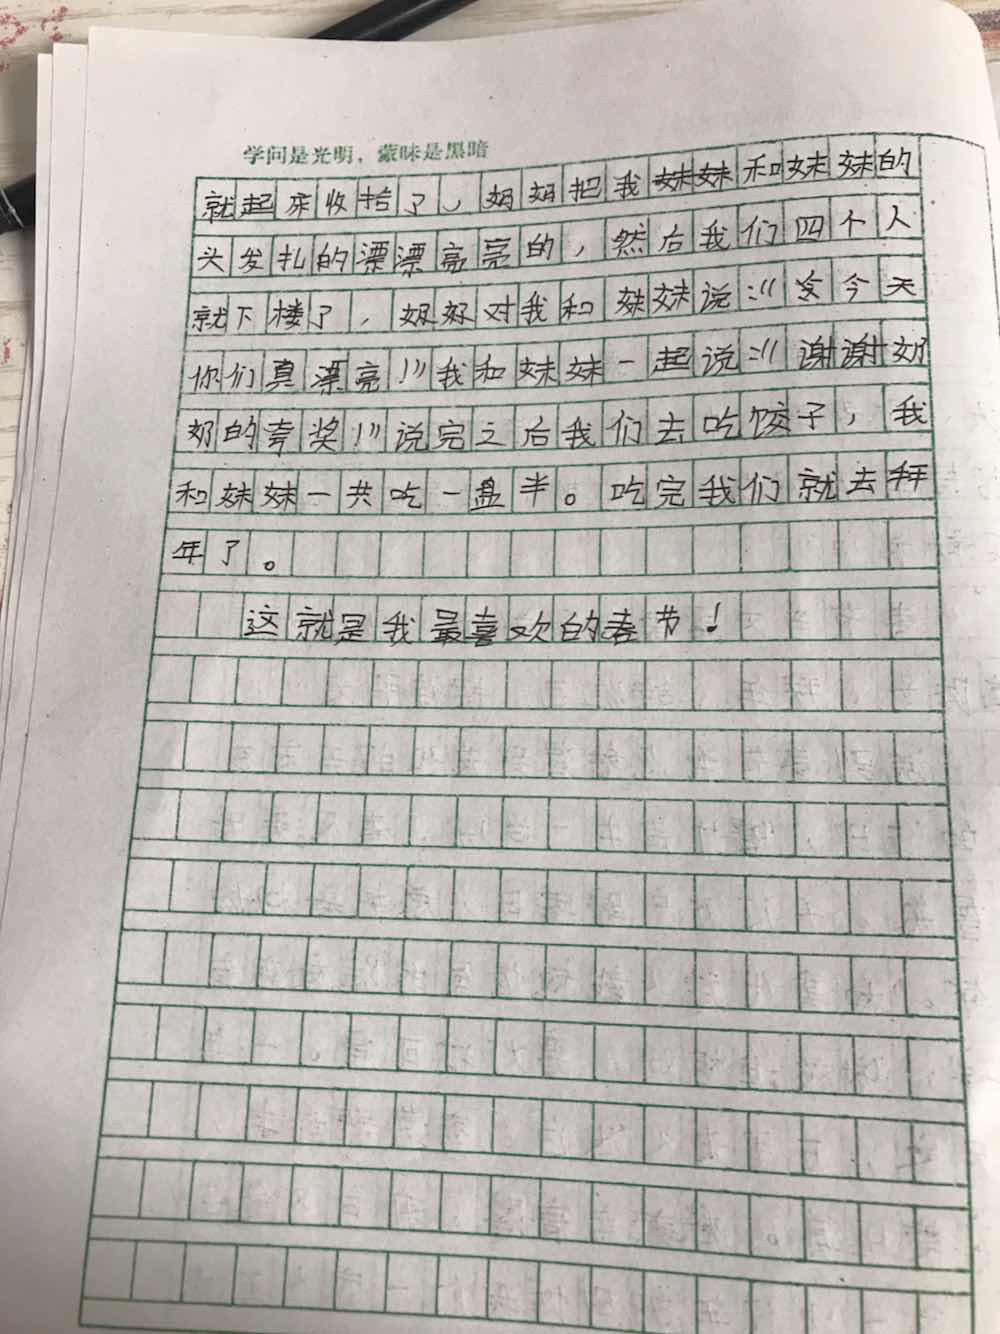 学问是光明，蒙昧是黑暗
就起床收拾了，妈妈把我妹妹和妹妹的
头发扎的漂漂亮亮的，然后我们四个人
就下楼了，奶奶对我和妹妹说：“今天
你们真漂亮！”我和妹妹一起说：“谢谢奶
奶的夸奖！”说完之后我们去吃饺子，我
和妹妹一共吃一盘半。吃完我们就去拜
年了。
这就是我最喜欢的春节！